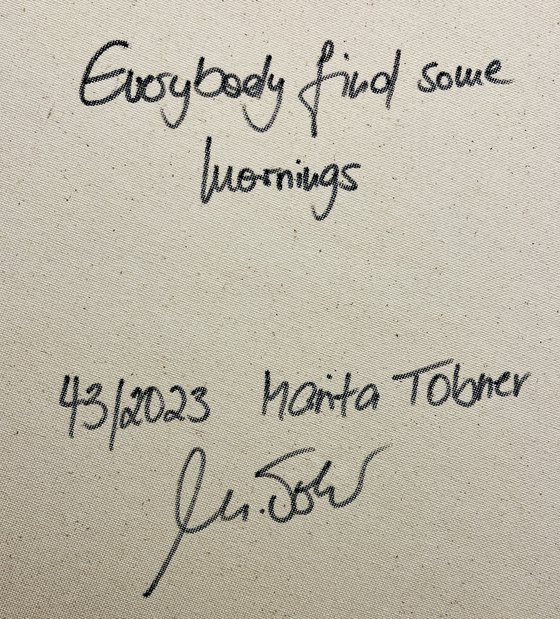 Everybody find some
mornings
43/2023 Marita Tobner